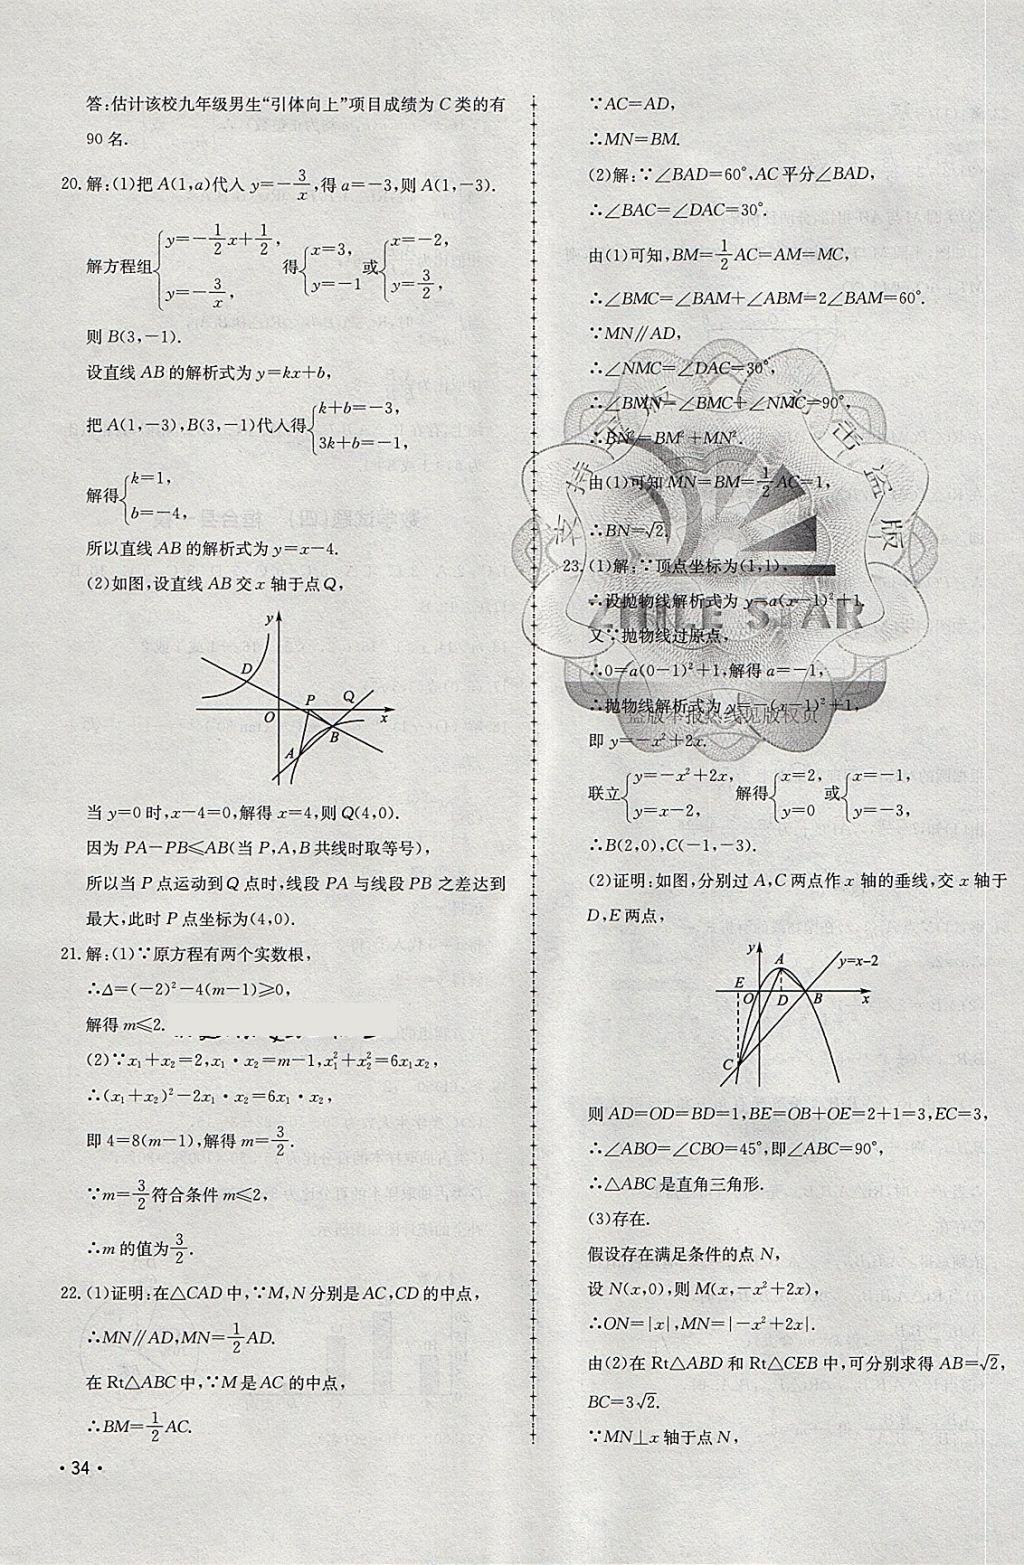 答:估计该校九年级男生“引体向上”项目成绩为 C 类的有
90 名.
20.解:(1)把 A(1,a)代入 y=-3/x,得 a=-3,则 A(1,-3).
解方程组{y=-1/2x+1/2, y=-3/x, 得{x=3, y=-1 或{x=-2, y=3/2,
则 B(3,-1).
设直线 AB 的解析式为 y=kx+b,
把 A(1,-3),B(3,-1)代入得{k+b=-3, 3k+b=-1,
解得{k=1, b=-4,
所以直线 AB 的解析式为 y=x-4.
(2)如图,设直线 AB 交 x 轴于点 Q,
y
D
P
Q
O
x
B
A
当 y=0 时,x-4=0,解得 x=4,则 Q(4,0).
因为 PA-PB≤AB(当 P,A,B 共线时取等号),
所以当 P 点运动到 Q 点时,线段 PA 与线段 PB 之差达到
最大,此时 P 点坐标为(4,0).
21.解:(1)∵原方程有两个实数根,
∴Δ=(-2)²-4(m-1)≥0,
解得 m≤2.
(2)∵x₁+x₂=2,x₁·x₂=m-1,x₁²+x₂²=6x₁x₂,
∴(x₁+x₂)²-2x₁·x₂=6x₁·x₂,
即 4=8(m-1),解得 m=3/2.
∵m=3/2符合条件 m≤2,
∴m 的值为3/2.
22.(1)证明:在△CAD 中,∵M,N 分别是 AC,CD 的中点,
∴MN∥AD,MN=1/2AD.
在 Rt△ABC 中,∵M 是 AC 的中点,
∴BM=1/2AC.
·34·
∵AC=AD,
∴MN=BM.
(2)解:∵∠BAD=60°,AC 平分∠BAD,
∴∠BAC=∠DAC=30°.
由(1)可知,BM=1/2AC=AM=MC,
∴∠BMC=∠BAM+∠ABM=2∠BAM=60°.
∵MN∥AD,
∴∠NMC=∠DAC=30°,
∴∠BMN=∠BMC+∠NMC=90°,
∴BN²=BM²+MN².
由(1)可知 MN=BM=1/2AC=1,
∴BN=√2.
23.(1)解:∵顶点坐标为(1,1),
∴设抛物线解析式为 y=a(x-1)²+1.
ZHILE STAR
又∵抛物线过原点,
∴0=a(0-1)²+1,解得 a=-1,
∴抛物线解析式为 y=-(x-1)²+1,
盗版举报热线见版权页
即 y=-x²+2x.
联立{y=-x²+2x, y=x-2, 解得{x=2, y=0 或{x=-1, y=-3,
∴B(2,0),C(-1,-3).
(2)证明:如图,分别过 A,C 两点作 x 轴的垂线,交 x 轴于
D,E 两点,
y
A
y=x-2
E
O
D
B
x
C
则 AD=OD=BD=1,BE=OB+OE=2+1=3,EC=3,
∴∠ABO=∠CBO=45°,即∠ABC=90°,
∴△ABC 是直角三角形.
(3)存在.
假设存在满足条件的点 N,
设 N(x,0),则 M(x,-x²+2x),
∴ON=|x|,MN=|-x²+2x|.
由(2)在 Rt△ABD 和 Rt△CEB 中,可分别求得 AB=√2,
BC=3√2.
∵MN⊥x 轴于点 N,